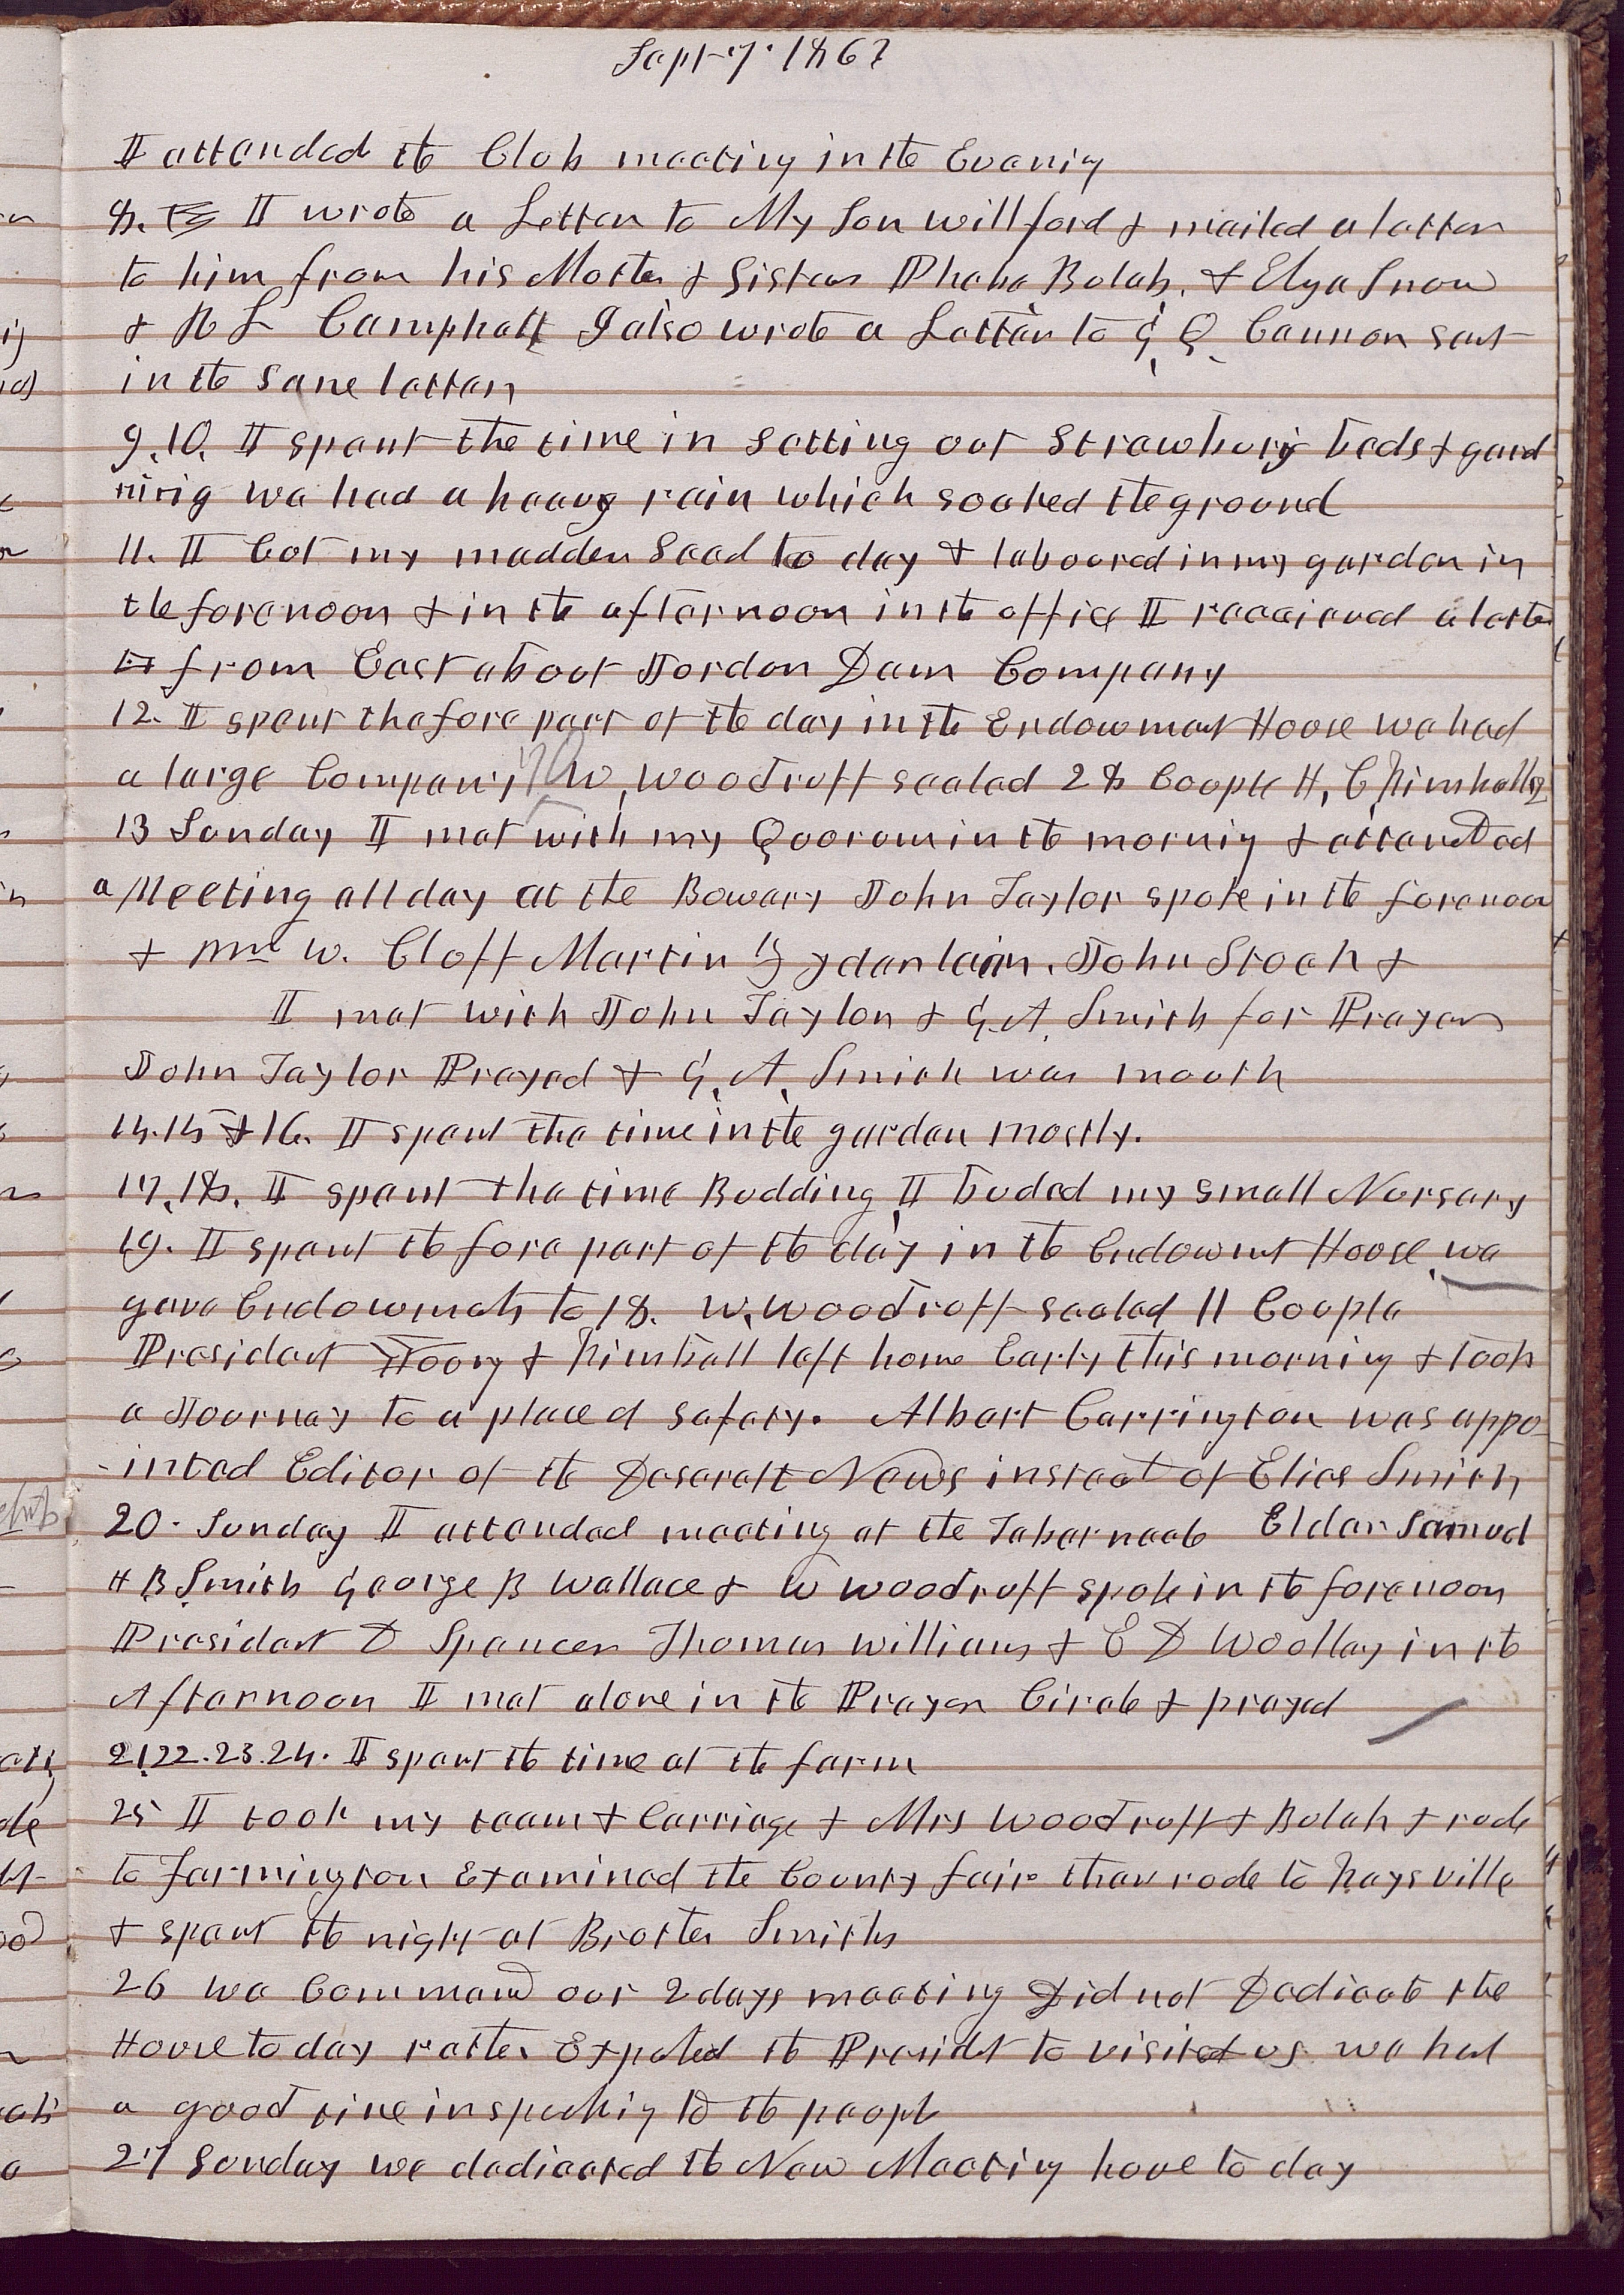 Sept 7. 1863
I attended the Club meeting in the Evening
8. I wrote a Letter to My Son Willford & mailed a letter
to him from his Mother & Sisters Phebe Bulah, & Elya Snow
& R L Campbell I also wrote a Letter to G Q Cannon sent
in the same letter
9.10. I spent the time in setting out Strawbury beds & gard
ning we had a heavy rain which soaked the ground
11. I Cut my madder Seed to day & laboured in my garden in
the forenoon & in the afternoon in the office I receieved a letter
from East about Jordon Dam Company
12. I spent the fore part of the day in the Endowment House we had
a large Company W, Woodruff sealed 28 Couple H, C Kimball 2
13 Sunday I met with my Quorum in the morning & attended
a Meeting all day at the Bowery John Taylor spoke in the forenoon
& Wm W. Cluff Martin John Stock &
I met with John Taylor & G. A, Smith for Prayer
John Taylor Prayed & G, A, Smith was mouth
14.15 & 16. I spent the time in the garden mostly.
17,18. I spent the time Budding, I buded my small Nursery
19. I spent the fore part of the day in the Endowmet House, we
gave Endowmets to 18. W, Woodruff sealed 11 Couple
President Young & Kimball left home Early this morning & took
a Journey to a place of safety. Albert Carrington was appo
-inted Editor of the Deserett News instead of Elias Smith
20. Sunday I attended meeting at the Tabernacle Elder Samuel
H B Smith George B Wallace & W Woodruff spoke in the forenoon
President D Spencer Thomas Williams & E D Woolley in the
Afternoon I met alone in the Prayer Circle & prayed
21,22.23.24. I spent the time at the farm
25 I took my team & Carriage & Mrs Woodruff & Bulah & rode
to Farmington Examined the County fair then rode to Kaysville
& spent the night at Brother Smiths
26 we Commend our 2 days meeting Did not Dedicate the
House to day rather Expected the Presidet to visit us we had
a good time in speaking to the people
27 Sunday we dedicated the New Meeting house to day